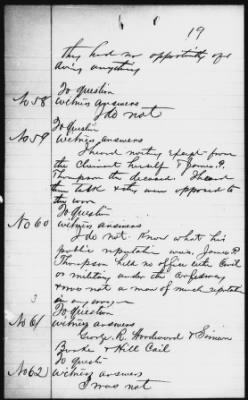 19
they had no opportunity of
doing anything
To question
No 58 witness answers
I do not
To question
No 59 witness answers
I heard nothing except from
the claimant himself & James P.
Thompson the deceased. I heard
them talk & they were opposed to
the war
To question
No 60 witness answers
I do not know what his
public reputation was. James P.
Thompson held no office either Civil
or military under the Confederacy
& was not a man of much reputation
in any way
3
To question
No 61 witness answers
George R. Hardwood & Simeon
& Hill Cail
To questi
No 62 witness answers
I was not